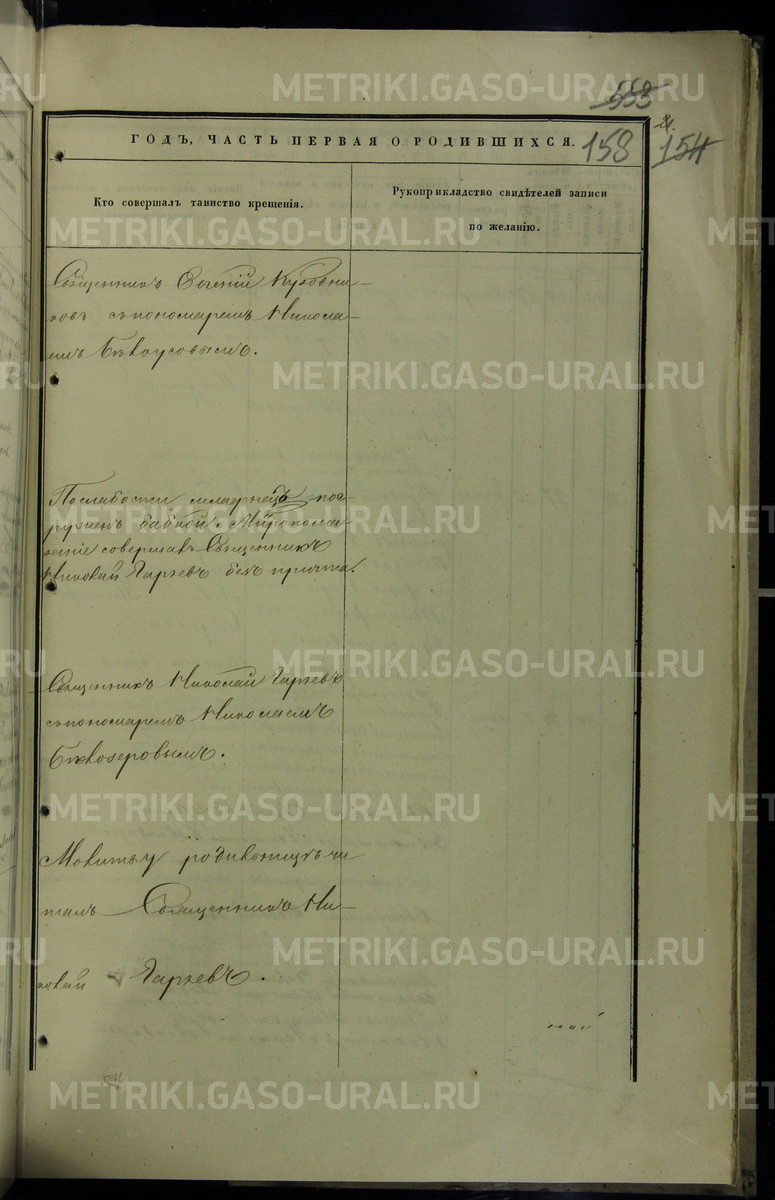 553
158
154
ГОДЪ, ЧАСТЬ ПЕРВАЯ О РОДИВШИХСЯ.
Кто совершалъ таинство крещенія.
Рукоприкладство свидѣтелей записи
по желанію.
Священникъ Евгеній
съ пономаремъ Никола-
емъ
По слабости младенецъ пог-
руженъ бабкой. Мѵропома-
заніе совершалъ Священникъ
Николай Гаряевъ безъ причта.
Священникъ Николай Гаряевъ
съ пономаремъ Николаемъ
Бѣлозеровымъ.
Молитву родильницѣ чи
талъ Священникъ Ни-
колай Гаряевъ.
METRIKI.GASO-URAL.RU